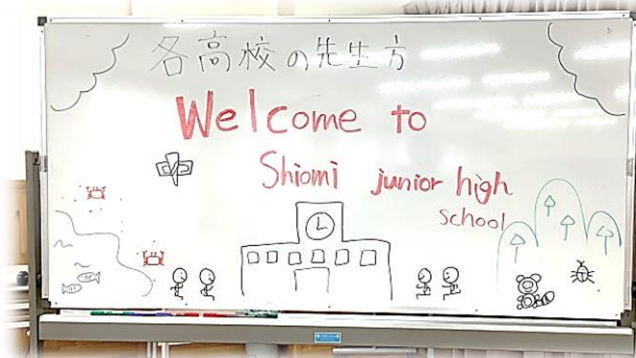 各高校の先生方
Welcome to
Shiomi junior high
school